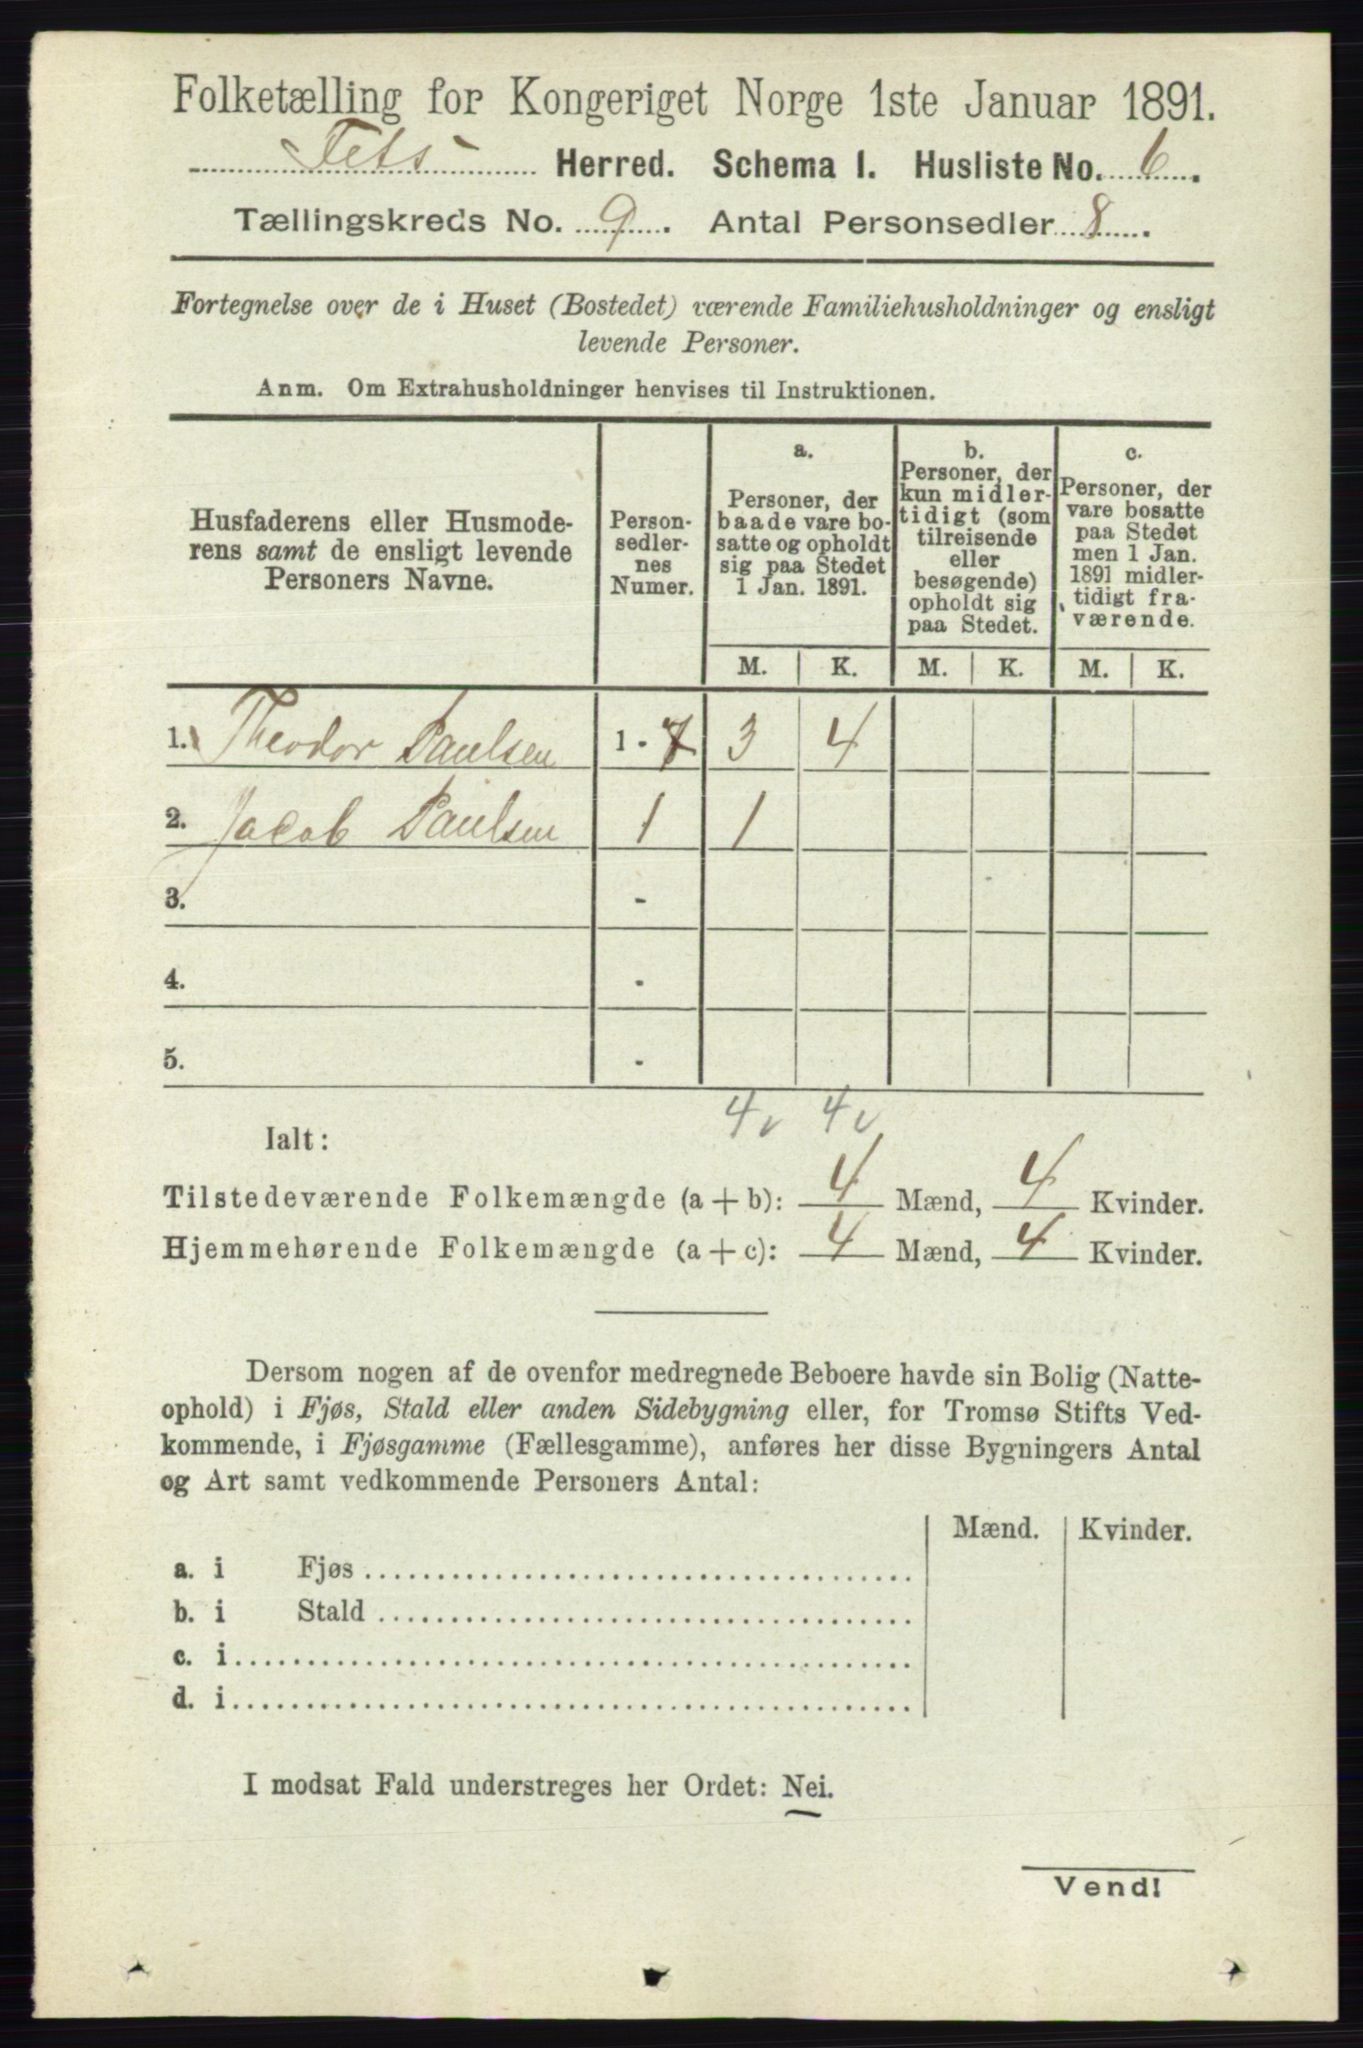 Folketælling for Kongeriget Norge 1ste Januar 1891.
Fets Herred. Schema I. Husliste No. 6.
Tællingskreds No. 9. Antal Personsedler 8.
Fortegnelse over de i Huset (Bostedet) værende Familiehusholdninger og ensligt
levende Personer.
Anm. Om Extrahusholdninger henvises til Instruktionen.
Husfaderens eller Husmode-
rens samt de ensligt levende
Personers Navne.
Person-
sedler-
nes
Numer.
a.
Personer, der
baade vare bo-
satte og opholdt
sig paa Stedet
1 Jan. 1891.
b.
Personer, der
kun midler-
tidigt (som
tilreisende
eller
besøgende)
opholdt sig
paa Stedet.
c.
Personer, der
vare bosatte
paa Stedet
men 1 Jan.
1891 midler-
tidigt fra-
værende.
M. K. M. K. M. K.
1. Theodor Paulsen 1 - 7 3 4
2. Jacob Paulsen 1 1
3. -
4. -
5. -
4v 4v
Ialt:
Tilstedeværende Folkemængde (a + b): 4 Mænd, 4 Kvinder.
Hjemmehørende Folkemængde (a + c): 4 Mænd, 4 Kvinder.
Dersom nogen af de ovenfor medregnede Beboere havde sin Bolig (Natte-
ophold) i Fjøs, Stald eller anden Sidebygning eller, for Tromsø Stifts Ved-
kommende, i Fjøsgamme (Fællesgamme), anføres her disse Bygningers Antal
og Art samt vedkommende Personers Antal:
Mænd. Kvinder.
a. i Fjøs
b. i Stald
c. i
d. i
I modsat Fald understreges her Ordet: Nei.
Vend!